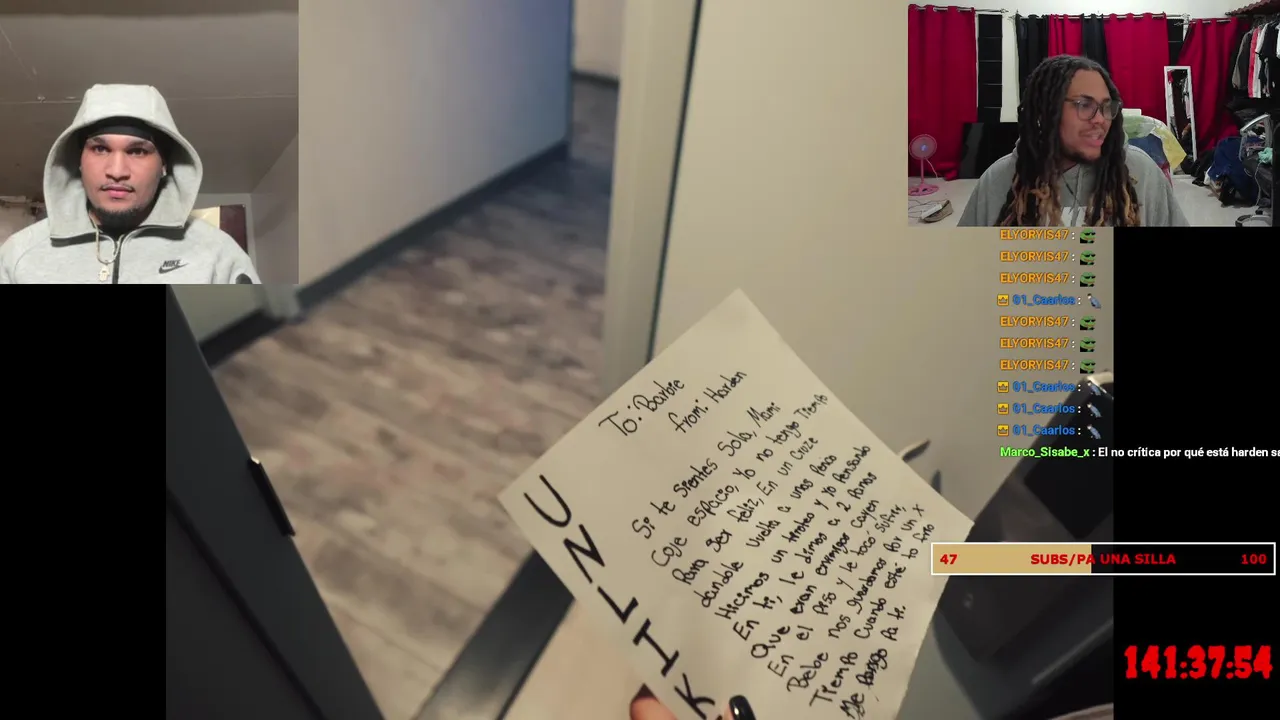 To: Barbie
from: Harden
Si te sientes Sola, Mami
Coje espacio, Yo no tengo Tiempo
Para Ser feliz, En un Cruze
dandole Vuelta a unos Perco
Hicimos un tiroteo y Yo Pensando
En ti, le dimos a 2 Panas
Que eran enemigos Cayen
En el Piso y le toco sufrir,
Bebe nos guardamos Por un X
Tiempo Cuando esté to frio
Me Pongo Pa ti.
UNLIK
NIKE
ELYORYIS47 :
ELYORYIS47 :
ELYORYIS47 :
01_Caarlos :
ELYORYIS47 :
ELYORYIS47 :
ELYORYIS47 :
01_Caarlos :
01_Caarlos :
01_Caarlos :
Marco_Sisabe_x : El no crítica por qué está harden sa
47 SUBS/PA UNA SILLA 100
141:37:54